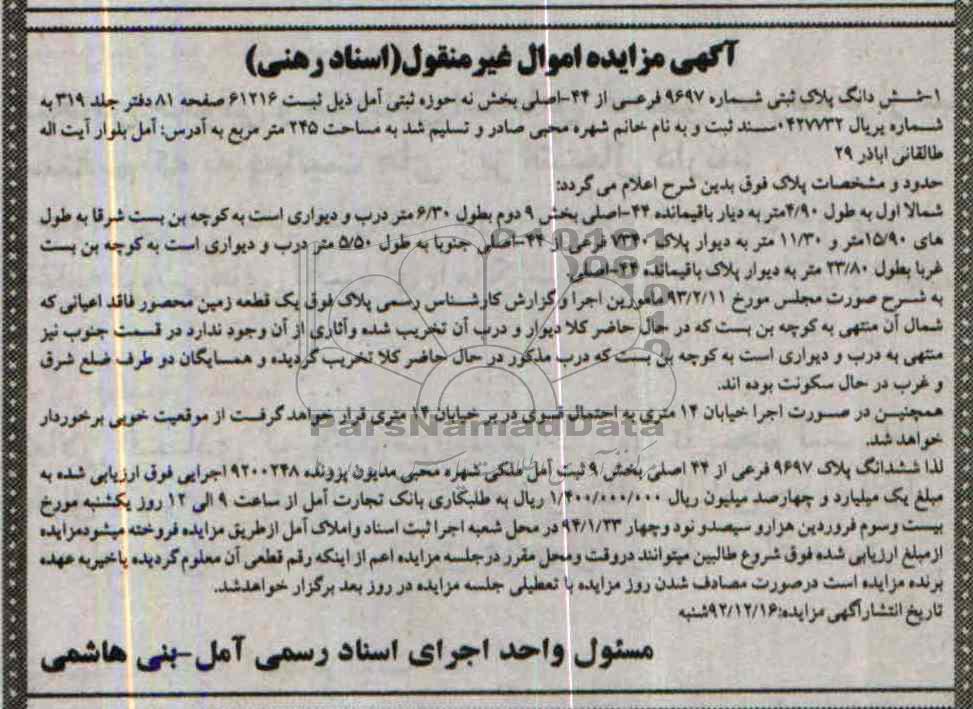 آگهی مزایده اموال غیر منقول(اسناد رهنی)
۱-شش دانگ پلاک ثبتی شماره ۹۶۹۷ فرعی از ۴۴-اصلی بخش نه حوزه ثبتی آمل ذیل ثبت ۶۱۲۱۶ صفحه ۸۱ دفتر جلد ۳۱۹ به
شماره پریال ۰۴۲۷۷۳۲سند ثبت و به نام خانم شهره محبی صادر و تسلیم شد به مساحت ۲۴۵ متر مربع به آدرس: آمل بلوار آیت اله
طالقانی اباذر ۲۹
حدود و مشخصات پلاک فوق بدین شرح اعلام می گردد:
شمالا اول به طول ۴/۹۰متر به دیار باقیمانده ۴۴-اصلی بخش ۹ دوم بطول ۶/۳۰ متر درب و دیواری است به کوچه بن بست شرقا به طول
های ۱۵/۹۰متر و ۱۱/۳۰ متر به دیوار پلاک ۷۳۴۰ فرعی از ۴۴-اصلی جنوبا به طول ۵/۵۰ متر درب و دیواری است به کوچه بن بست
غربا بطول ۲۳/۸۰ متر به دیوار پلاک باقیمانده ۴۴-اصلی.
به شرح صورت مجلس مورخ ۹۳/۲/۱۱ مامورین اجرا و گزارش کارشناس رسمی پلاک فوق یک قطعه زمین محصور فاقد اعیانی که
شمال آن منتهی به کوچه بن بست که در حال حاضر کلا دیوار و درب آن تخریب شده وآثاری از آن وجود ندارد در قسمت جنوب نیز
منتهی به درب و دیواری است به کوچه بن بست که درب مذکور در حال حاضر کلا تخریب گردیده و همسایگان دو طرف ضلع شرق
و غرب در حال سکونت بوده اند.
همچنین در صورت اجرا خیابان ۱۴ متری به احتمال قسوی در بر خیابان ۱۴ متری قرار خواهد گرفت از موقعیت خوبی برخوردار
خواهد شد.
ParsNamadData
لذا ششدانگ پلاک ۹۶۹۷ فرعی از ۴۴ اصلی بخش ۹ ثبت آمل ملکی شهره محبی مدیون پرونده ۹۲۰۰۲۴۸ اجرایی فوق ارزیابی شده به
مبلغ یک میلیارد و چهارصد میلیون ریال ۱/۴۰۰/۰۰۰/۰۰۰ ریال به طلبکاری بانک تجارت آمل از ساعت ۹ الی ۱۲ روز یکشنبه مورخ
بیست وسوم فروردین هزارو سیصدو نود وچهار ۹۴/۱/۲۳ در محل شعبه اجرا ثبت اسناد واملاک آمل ازطریق مزایده فروخته میشودمزایده
ازمبلغ ارزیابی شده فوق شروع طالبین میتوانند دروقت ومحل مقرر درجلسه مزایده اعم از اینکه رقم قطعی آن معلوم گردیده یاخیربه عهده
برنده مزایده است درصورت مصادف شدن روز مزایده با تعطیلی جلسه مزایده در روز بعد برگزار خواهدشد.
تاریخ انتشارآگهی مزایده:۹۲/۱۲/۱۶شنبه
مسئول واحد اجرای اسناد رسمی آمل-بنی هاشمی